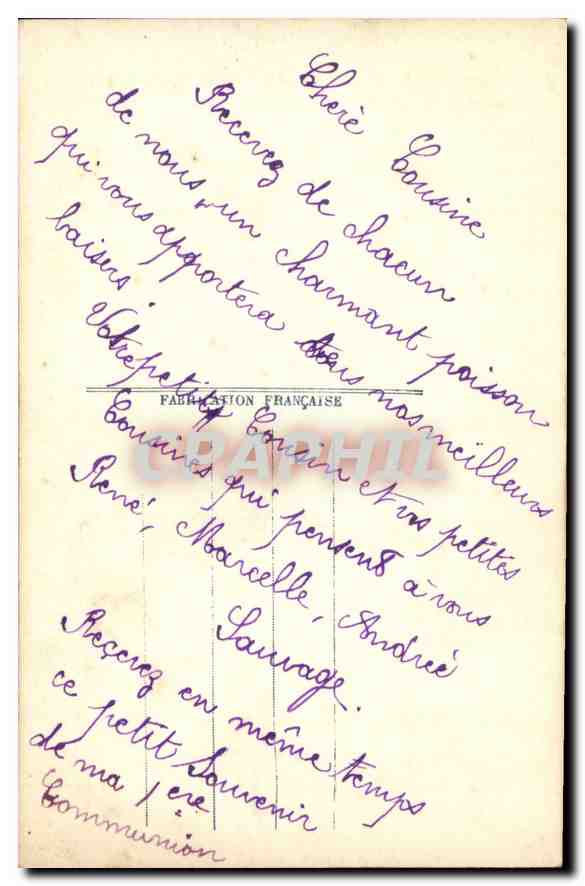 Chère Cousine
Reçevez de chacun
de nous un charmant poisson
qui vous apportera tous nos meilleurs
baisers.
Votre petit Cousin et vos petites
Cousines qui pensent à vous
René, Marcelle, Andrée
Sauvage.
Reçevez en même temps
ce petit Souvenir
de ma 1ère
Communion
FABRICATION FRANÇAISE
CPAPHIL